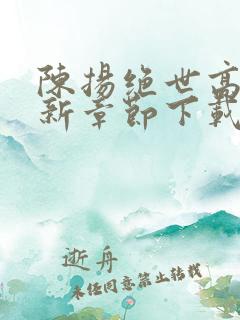 陳揚絕世高
新章節下載
逝舟
未經同意禁止轉載